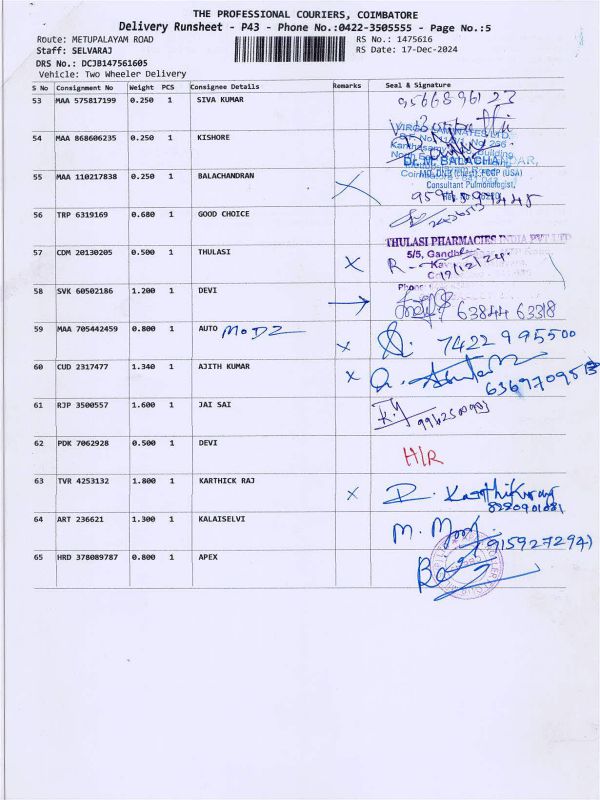 THE PROFESSIONAL COURIERS, COIMBATORE
Delivery Runsheet - P43 - Phone No.:0422-3505555 - Page No.:5
Route: METUPALAYAM ROAD RS No.: 1475616
Staff: SELVARAJ RS Date: 17-Dec-2024
DRS No.: DCJB147561605
Vehicle: Two Wheeler Delivery
S No Consignment No Weight PCS Consignee Details Remarks Seal & Signature
53 MAA 575817199 0.250 1 SIVA KUMAR 9566896123
54 MAA 868606235 0.250 1 KISHORE
VIRGO LAMINATES LTD.
55 MAA 110217838 0.250 1 BALACHANDRAN
Consultant Pulmonologist,
56 TRP 6319169 0.680 1 GOOD CHOICE
57 CDM 20130205 0.500 1 THULASI X
THULASI PHARMACIES INDIA PVT LTD
5/5,
19/12/24
58 SVK 60502186 1.200 1 DEVI → 63844 63318
59 MAA 705442459 0.800 1 AUTO MODZ X 7422995500
60 CUD 2317477 1.340 1 AJITH KUMAR X
61 RJP 3500557 1.600 1 JAI SAI
62 PDK 7062928 0.500 1 DEVI H/R
63 TVR 4253132 1.800 1 KARTHICK RAJ X
64 ART 236621 1.300 1 KALAISELVI 9159272941
65 HRD 378089787 0.800 1 APEX